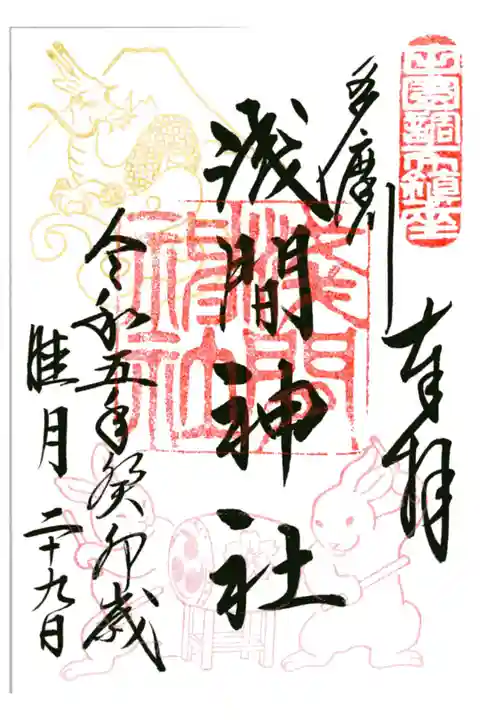 奉拝
多摩川
浅間神社
浅間神社
令和五年癸卯歳
睦月二十九日